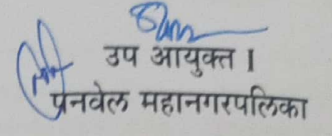 उप आयुक्त ।
पनवेल महानगरपालिका